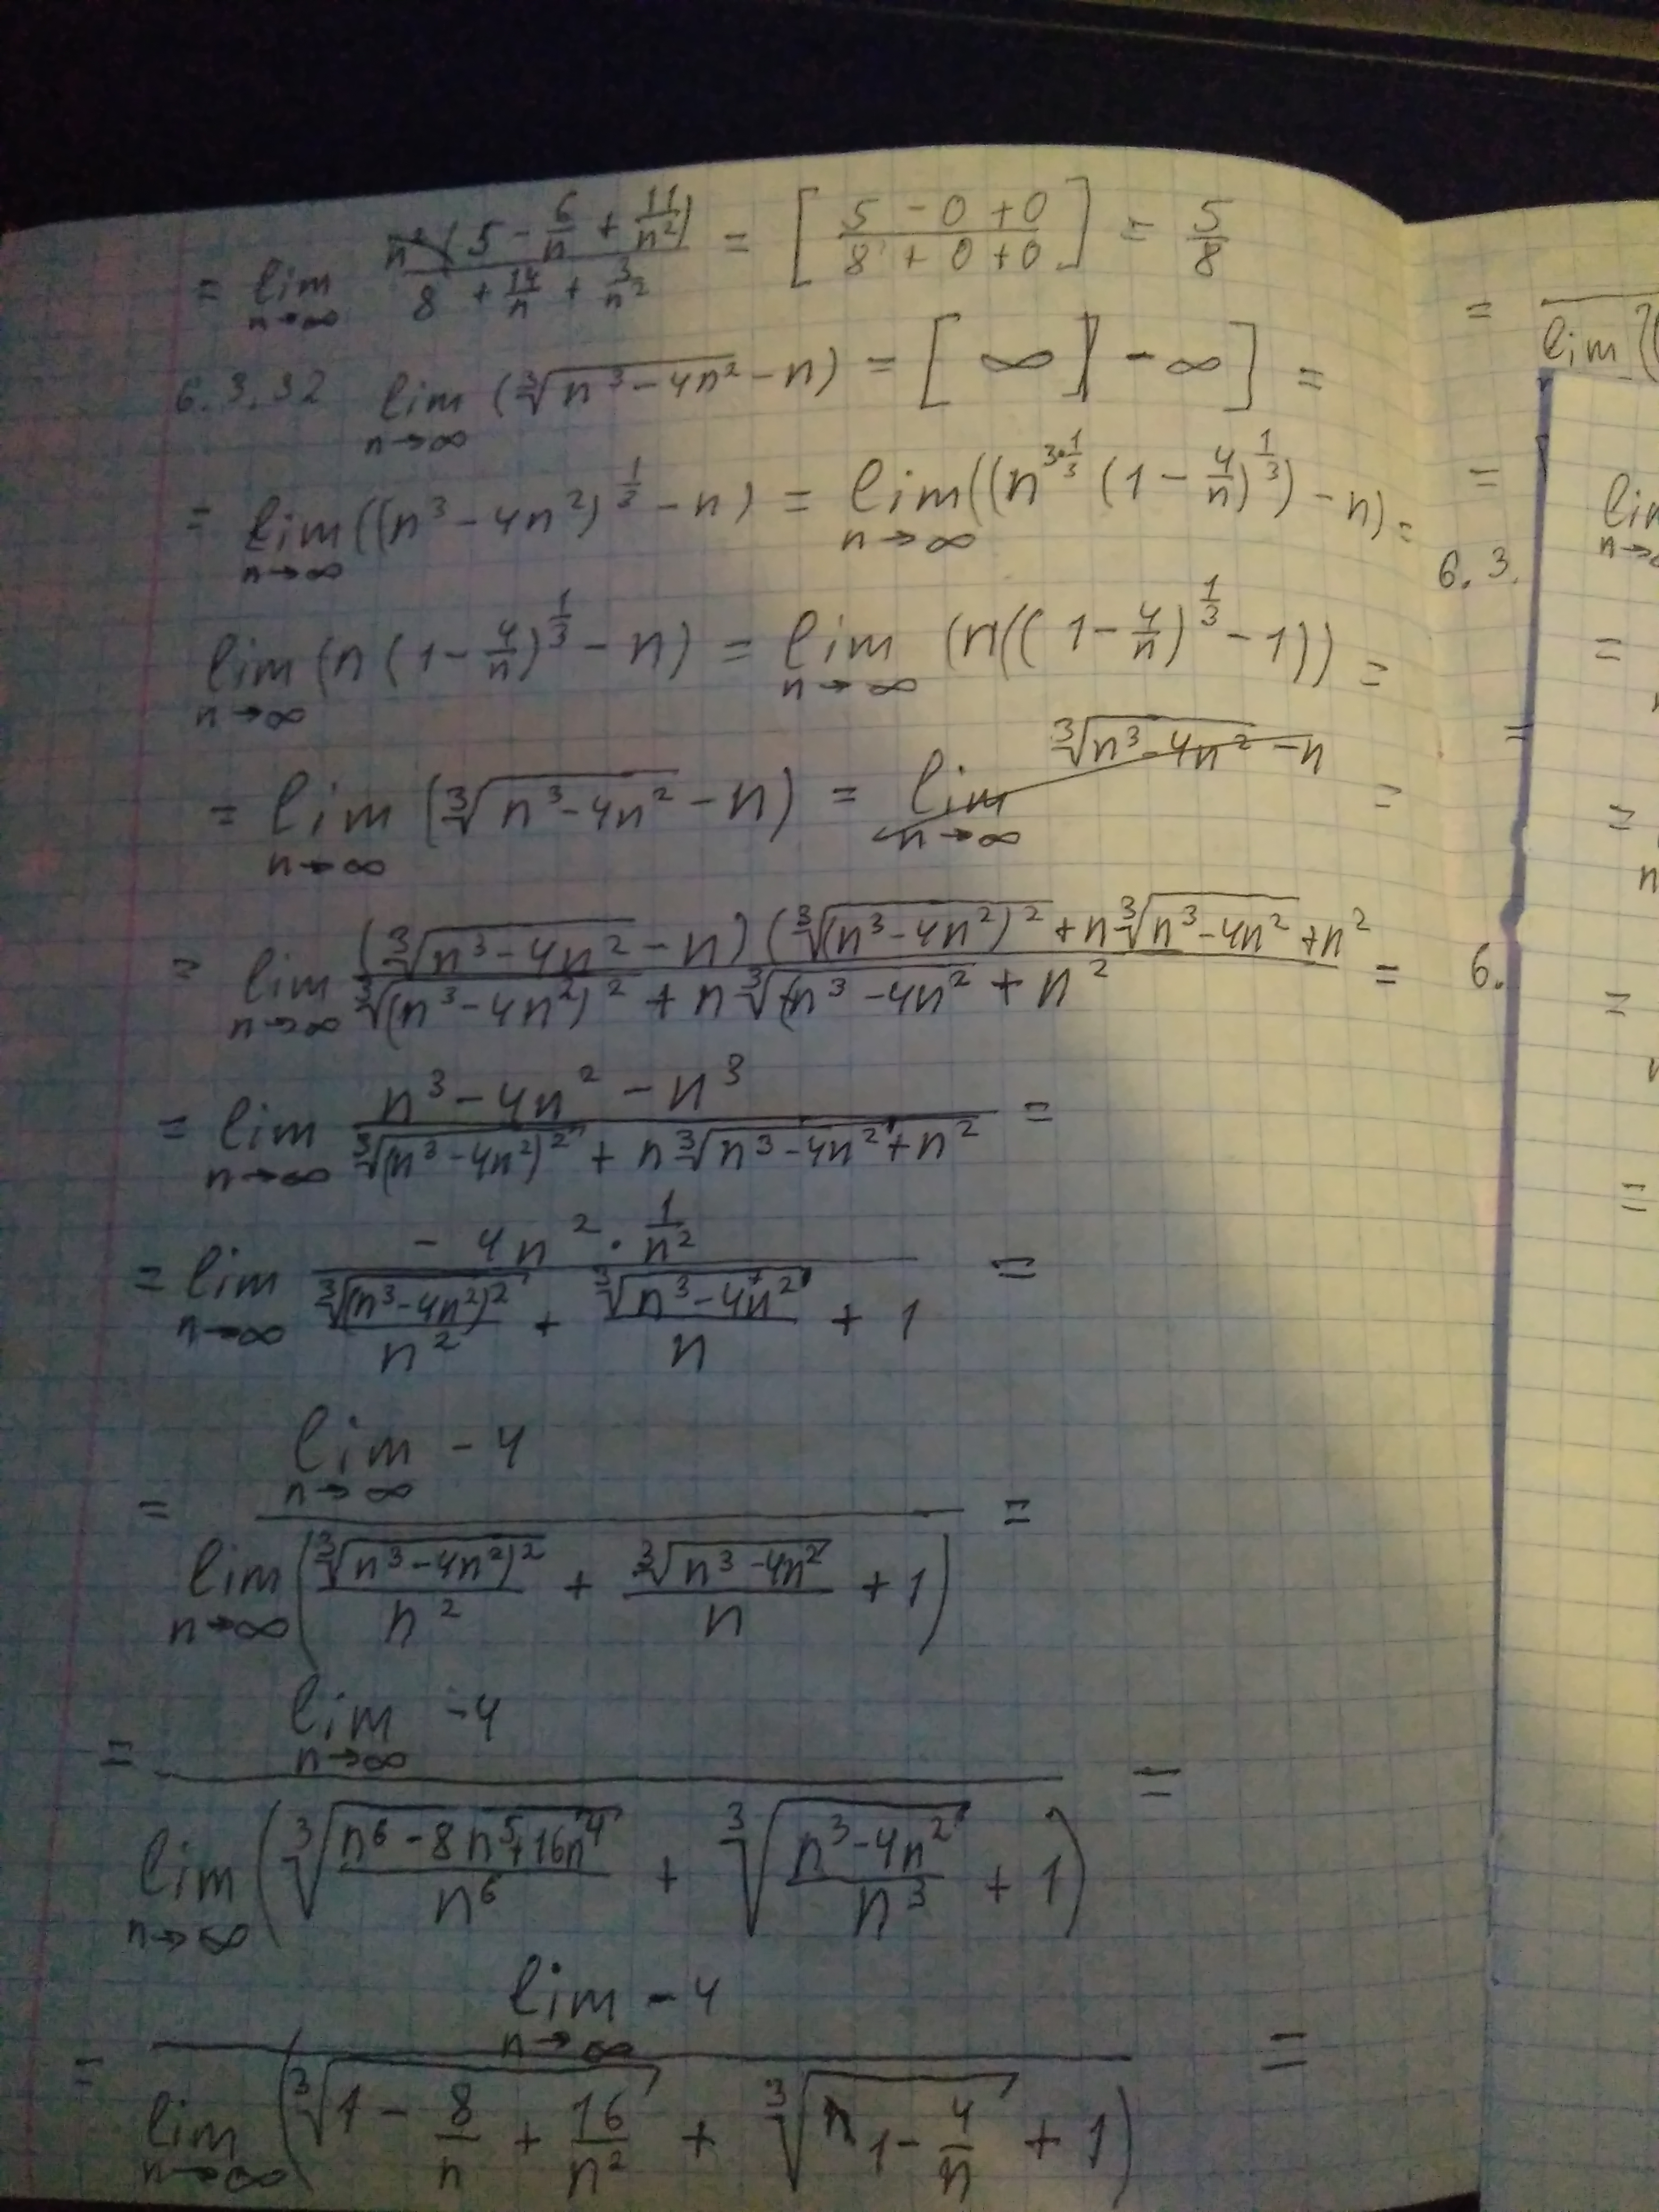 = lim n→∞ n²(5 - 6/n + 11/n²) / 8 + 14/n + 3/n² = [5 - 0 + 0 / 8 + 0 + 0] = 5/8
6.3.32 lim n→∞ (∛(n³ - 4n²) - n) = [∞ - ∞] =
= lim n→∞ ((n³ - 4n²)^(1/3) - n) = lim n→∞ ((n^(3·1/3) (1 - 4/n)^(1/3)) - n) =
lim n→∞ (n(1 - 4/n)^(1/3) - n) = lim n→∞ (n((1 - 4/n)^(1/3) - 1)) =
= lim n→∞ (∛(n³ - 4n²) - n) = lim n→∞ ∛(n³ - 4n²) - n =
= lim n→∞ (∛(n³ - 4n²) - n)(∛(n³ - 4n²)² + n∛(n³ - 4n²) + n² / ∛(n³ - 4n²)² + n∛(n³ - 4n²) + n² =
= lim n→∞ n³ - 4n² - n³ / ∛(n³ - 4n²)² + n∛(n³ - 4n²) + n² =
= lim n→∞ - 4n² · 1/n² / ∛(n³ - 4n²)²/n² + ∛(n³ - 4n²)/n + 1 =
= lim n→∞ - 4 / lim n→∞ (∛(n³ - 4n²)²/n² + ∛(n³ - 4n²)/n + 1) =
= lim n→∞ - 4 / lim n→∞ (∛((n⁶ - 8n⁵ + 16n⁴)/n⁶) + ∛((n³ - 4n²)/n³) + 1) =
= lim n→∞ - 4 / lim n→∞ (∛(1 - 8/n + 16/n²) + ∛(1 - 4/n) + 1) =
= lim
=
6.3.
lim
=
=
=
6.
=
=